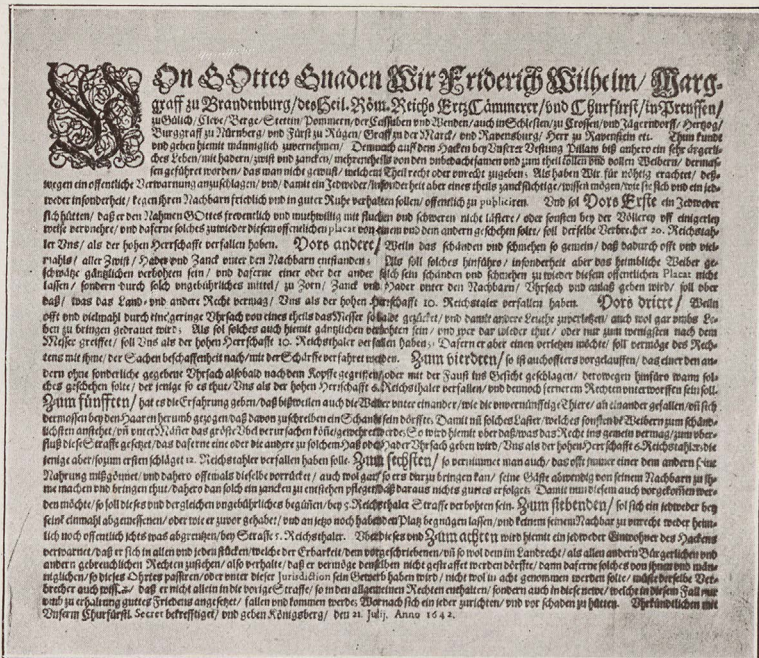 VOn GOttes Gnaden Wir Friderich Wilhelm/ Marg-
graff zu Brandenburg/ des Heil. Röm. Reichs Ertz Cämmerer/ vnd Churfürst/ in Preussen/
zu Gülich/ Cleve/ Berge/ Stettin/ Pommern/ der Cassuben vnd Wenden/ auch in Schlesien/ zu Crossen/ vnd Jägerndorff/ Hertzog/
Burggraff zu Nürnberg/ vnd Fürst zu Rügen/ Graff zu der Marck/ vnd Ravensburg/ Herr zu Ravenstein etc. Thun kundt
vnd geben hiemit männiglich zuvernehmen/ Demnach auff dem Hacken bey Vnserer Vestung Pillaw biß anhero ein sehr ärgerli-
ches Leben/ mit hadern/ zwist vnd zancken/ mehrentheils von den unbedachtsamen vnd zum theil tollen vnd vollen Weibern/ dermas-
sen geführet worden/ das man nicht gewust/ welchem Theil recht oder vnrecht zugeben; Als haben Wir für nöhtig erachtet/ deß-
wegen ein offentliche Verwarnung anzuschlagen/ vnd/ damit ein Jedweder/ insonderheit aber eines theils zancksüchtige/ wissen mögen/ wie sie sich vnd ein jed-
weder insonderheit/ kegen ihren Nachbarn friedlich vnd in guter Ruhe verhalten sollen/ offentlich zu publiciren. Vnd sol Vors Erste ein Jedweder
sich hütten/ daß er den Nahmen GOttes freventlich vnd muthwillig mit fluchen vnd schweren nicht lästere/ oder sonsten bey der Völlerey vff einigerley
weise verunehre/ vnd daferne solches zuwieder diesem offentlichen placat von einem vnd dem andern geschehen solte/ soll derselbe Verbrecher 20. Reichstah-
ler Vns/ als der hohen Herrschafft verfallen haben. Vors andere/ Weiln das schänden vnd schmehen so gemein/ daß dadurch offt vnd viel-
mahls/ aller Zwist/ Hader vnd Zanck unter den Nachbarn entstanden; Als soll solches hinführo/ insonderheit aber das heimbliche Weiber ge-
schwätze gäntzlichen verbohten sein/ vnd daferne einer oder der ander solch sein schänden vnd schmehen zu wieder diesem offentlichen Placat nicht
lassen/ sondern durch solch vngebührliches mittel/ zu Zorn/ Zanck vnd Hader unter den Nachbarn/ Vhrsach vnd anlaß geben wird/ soll über
daß/ was das Land- vnd andere Recht vermag/ Vns als der hohen Herrschafft 10. Reichstaler verfallen haben. Vors dritte/ Weiln
offt vnd vielmahl durch eine geringe Vhrsach von eines theils das Messer so balde gezücket/ vnd damit andere Leuthe zuverletzen/ auch wol gar vmbs Le-
ben zu bringen gedrawet wird; Als sol solches auch hiemit gäntzlichen verbohten sein/ vnd wer dar wieder thut/ oder nur zum wenigsten nach dem
Messer greiffet/ soll Vns als der hohen Herrschafft 10. Reichthaler verfallen haben; Dafern er aber einen verletzen möchte/ soll vermöge des Rech-
tens mit ihme/ der Sachen beschaffenheit nach/ mit der Schärffe verfahret werden. Zum vierdten/ so ist auch offters vorgelauffen/ daß einer den an-
dern ohne sonderliche gegebene Vhrsach alsobald nach dem Kopffe gegriffen/ oder mit der Faust ins Gesicht geschlagen/ derowegen hinfüro wann sol-
ches geschehen solte/ der jenige so es thut/ Vns als der hohen Herrschafft 6. Reichsthaler verfallen/ vnd dennoch fernerem Rechten unterworffen sein soll.
Zum fünfften/ hat es die Erfahrung geben/ daß bißweilen auch die Weiber vnter einander/ wie die vnvernünfftige Thiere/ an einander gefallen/ vñ sich
vermossen bey den Haaren herumb gezogen/ daß davon zu schreiben ein Schande sein dörffte. Damit nũ solches Laster/ welches sonsten de Weibern zum schänd-
lichsten anstehet/ vñ vnter Mäñer das gröste Vbel verursachen köñe/ gewehret werde; So wird hiemit vber daß/ was das Recht ins gemein vermag/ zum vber-
fluß diese Straffe gesetzet/ das daferne eine oder die andere zu solchem Haß oder Hader Vhrsach geben wird/ Vns als der hohen Herrschafft 6. Reichstahler/ die
jenige aber/ so zum ersten schläget 12. Reichstahler verfallen haben solle. Zum sechsten/ so vernimmet man auch/ das offt immer einer dem andern seine
Nahrung mißgönnet/ vnd dahero offtmals dieselbe vorrücket/ auch wol gar/ so ers dar zu bringen kan/ seine Gäste abwendig von seinem Nachbarn zu ih-
me machen vnd bringen thut/ dahero dan solch ein zancken zu entstehen pfleget/ daß daraus nichts guttes erfolget; Damit nun diesem auch vorgekommen wer-
den möchte/ so soll dieses vnd dergleichen vngebührliches begüñen/ bey 5. Reichsthaler Straffe verbohten sein. Zum siebenden/ sol sich ein jedweder bey
seinẽ einmahl abgemessenen/ oder wie er zuvor gehabet/ vnd an jetzo noch habenden Platz begnügen lassen/ vnd keinem seinem Nachbar zu vnrecht weder heim-
lich noch offentlich ichts was abgrentzen/ bey Straffe 5. Reichsthaler. Vber dieses vnd Zum achten wird hiemit ein jedweder Einwohner des Hackens
verwarnet/ daß er sich in allen vnd jeden stücken/ welche der Erbarkeit/ dem vorgeschriebenen/ vñ so wol dem Landrecht/ als allen andern Bürgerlichen vnd
andern gebreuchlichen Rechten zustehen/ also verhalte/ daß er vermöge denselben nicht gestraffet werden dörffte/ dann daferne solches von ihnen vnd män-
niglichen/ so dieses Ohrtes passiren/ oder unter dieser Jurisdiction sein Gewerb haben wird/ nicht wol in acht genommen werden solte/ müste derselbe Ver-
brecher auch wissen/ daß er nicht allein in die vorige Straffe/ so in den allgemeinen Rechten enthalten/ sondern auch in diese newe/ welche in diesem Fall nur
vmb zu erhaltung guttes Friedens angesetzet/ fallen vnd kommen werde; Wornach sich ein jeder zurichten/ vnd vor schaden zu hütten. Vhrkündtlichen mit
Vnserm Churfürstl. Secret bekrefftiget/ vnd geben Königsberg/ den 21. Julij. Anno 1642.